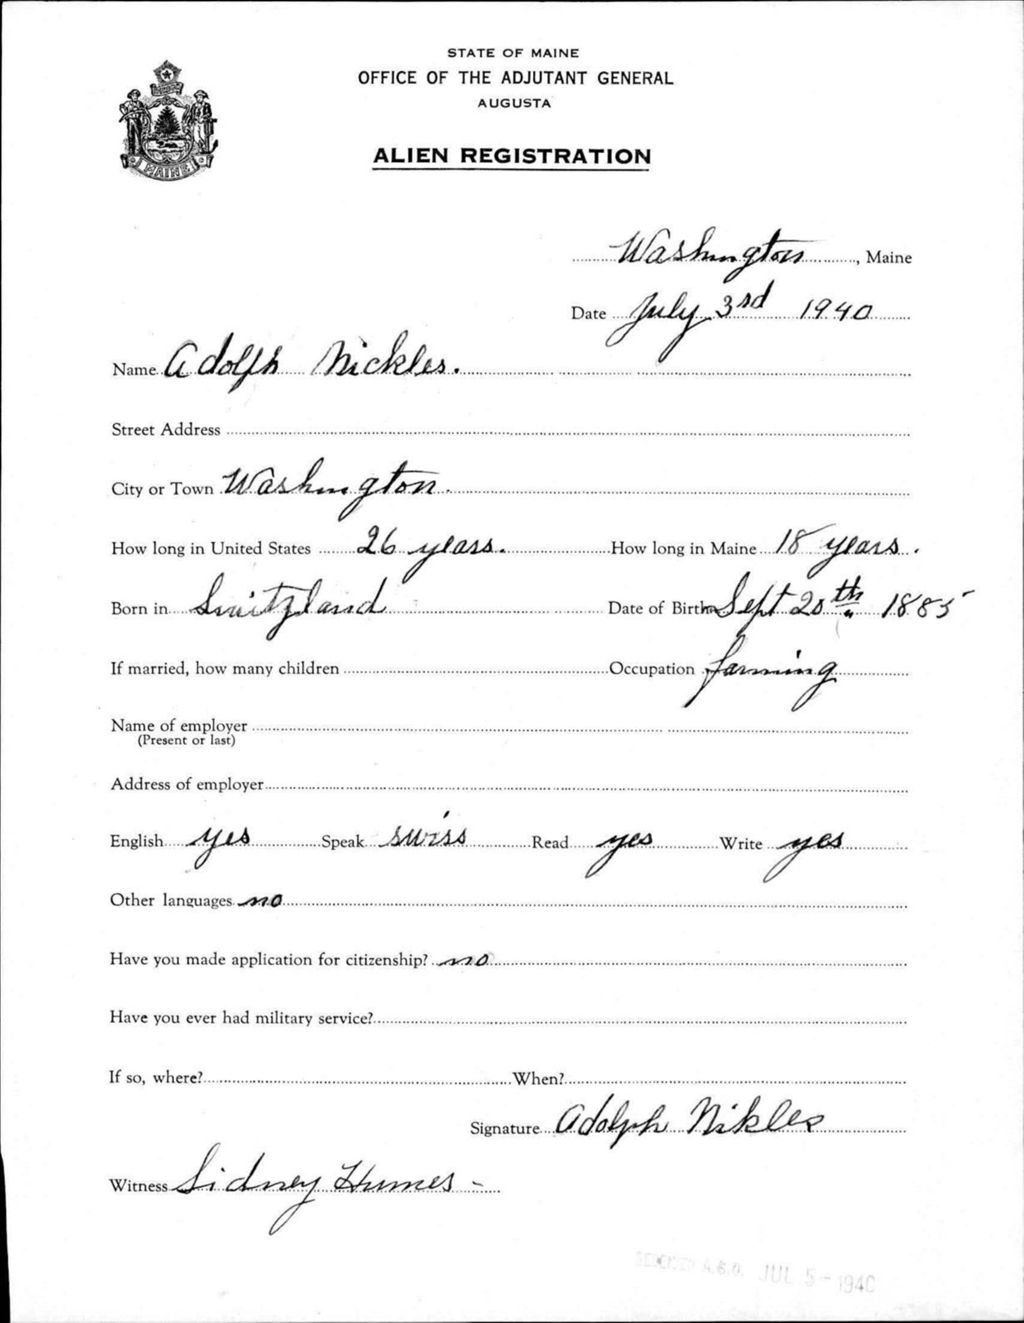 STATE OF MAINE
OFFICE OF THE ADJUTANT GENERAL
AUGUSTA
ALIEN REGISTRATION
MAINE
Washington, Maine
Date July 3rd 1940
Name Adolph Nickles.
Street Address
City or Town Washington.
How long in United States 26 years. How long in Maine 18 years.
Born in Switzland Date of Birth Sept 20th 1885
If married, how many children Occupation farming
Name of employer
(Present or last)
Address of employer
English yes Speak swiss Read yes Write yes
Other languages no
Have you made application for citizenship? no
Have you ever had military service?
If so, where? When?
Signature Adolph Nikles
Witness Sidney Humes -
RECEIVED A.G.O. JUL 5 - 1940